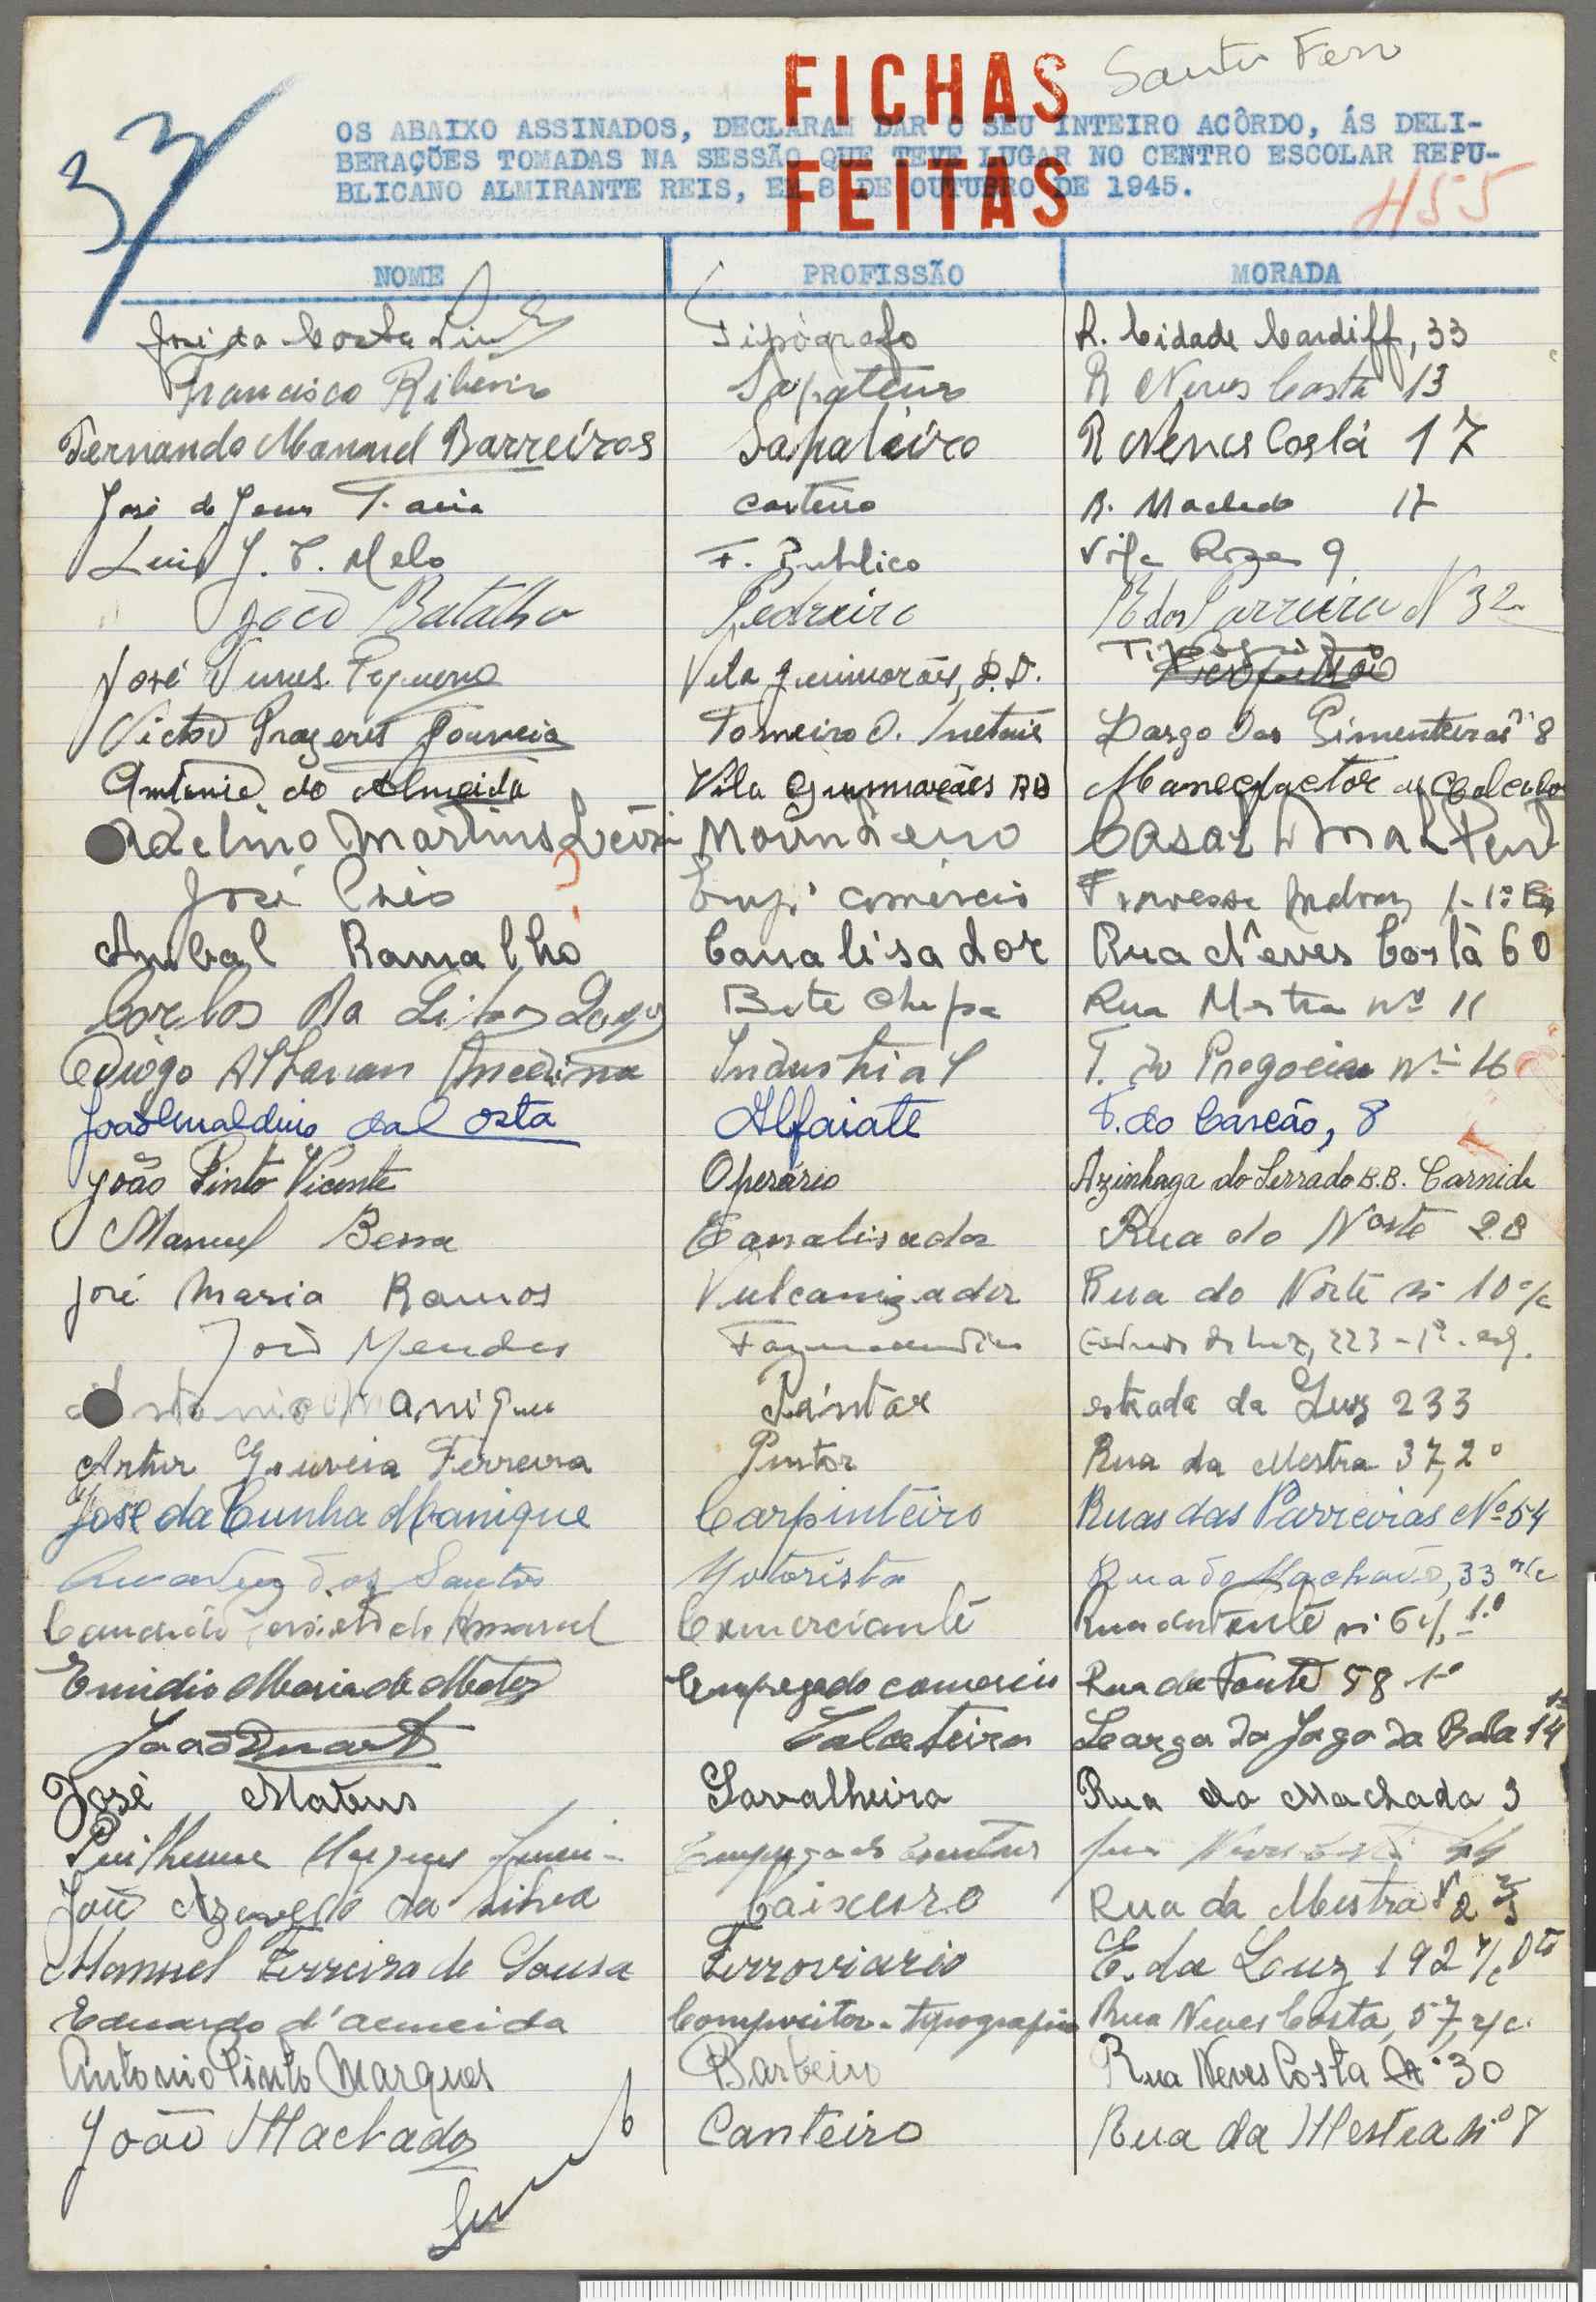 FICHAS
FEITAS
37
OS ABAIXO ASSINADOS, DECLARAM DAR O SEU INTEIRO ACÔRDO, ÁS DELI-
BERAÇÕES TOMADAS NA SESSÃO QUE TEVE LUGAR NO CENTRO ESCOLAR REPU-
BLICANO ALMIRANTE REIS, EM 8 DE OUTUBRO DE 1945.
NOME PROFISSÃO MORADA
José da Costa Tipógrafo R. Cidade Cardiff, 33
Francisco Ribeiro Sapateiro R Neves Costa 13
Fernando Manuel Barreiros Sapateiro R Neves Costa 17
José de Jesus Faria R. Machado 17
Luis J. T. Melo F. Publico Vila Roza 9
João Batalha Pedreiro R das Parreira N 32
José Nunes Pequeno Vila Guimarães, D.D. Tipografo
Victor Prazeres Gouveia Torneiro D. Metais Largo das Pimenteiras 8
Antonio de Almeida Vila Guimarães RD Manefactor de Calçado
Adelino Martins Casal
José Emp. comercio Travessa
Anibal Ramalho Canalisador Rua Neves Costa 60
Carlos da Bate Chapa Rua Mestra nº 11
Diogo Industrial T. do Pregoeiro nº 16
João Ernaldino da Costa Alfaiate T. do Cascão, 8
João Pinto Vicente Operário Azinhaga do Serrado B.B. Carnide
Manuel Bessa Canalisador Rua do Norte 28
José Maria Ramos Vulcanizador Rua do Norte nº 10 r/c
João Mendes Estrada da Luz, 223-1º-esq.
Antonio Manique Pintor estrada da Luz 233
Artur Gouveia Ferreira Pintor Rua da Mestra 37, 2º
José da Cunha Manique Carpinteiro Ruas das Parreiras Nº 54
dos Santos Motorista Rua do Machado, 33 r/c
do Amaral Comerciante Rua da Fonte
Emidio Maria de Matos Empregado comercio Rua da Fonte 58 1º
João Duarte Calceteiro Largo do Jogo da Bola 14
José Mateus Sarralheiro Rua do Machado 3
Guilherme Empregado
João Azevedo da Silva Caixeiro Rua da Mestra
Manuel Ferreira de Sousa Ferroviario E. da Luz 192 r/c Dto
Eduardo d'Almeida Compositor-tipografico Rua Neves Costa, 57, r/c.
Antonio Pinto Marques Barbeiro Rua Neves Costa Nº 30
João Machado Canteiro Rua da Mestra nº 8